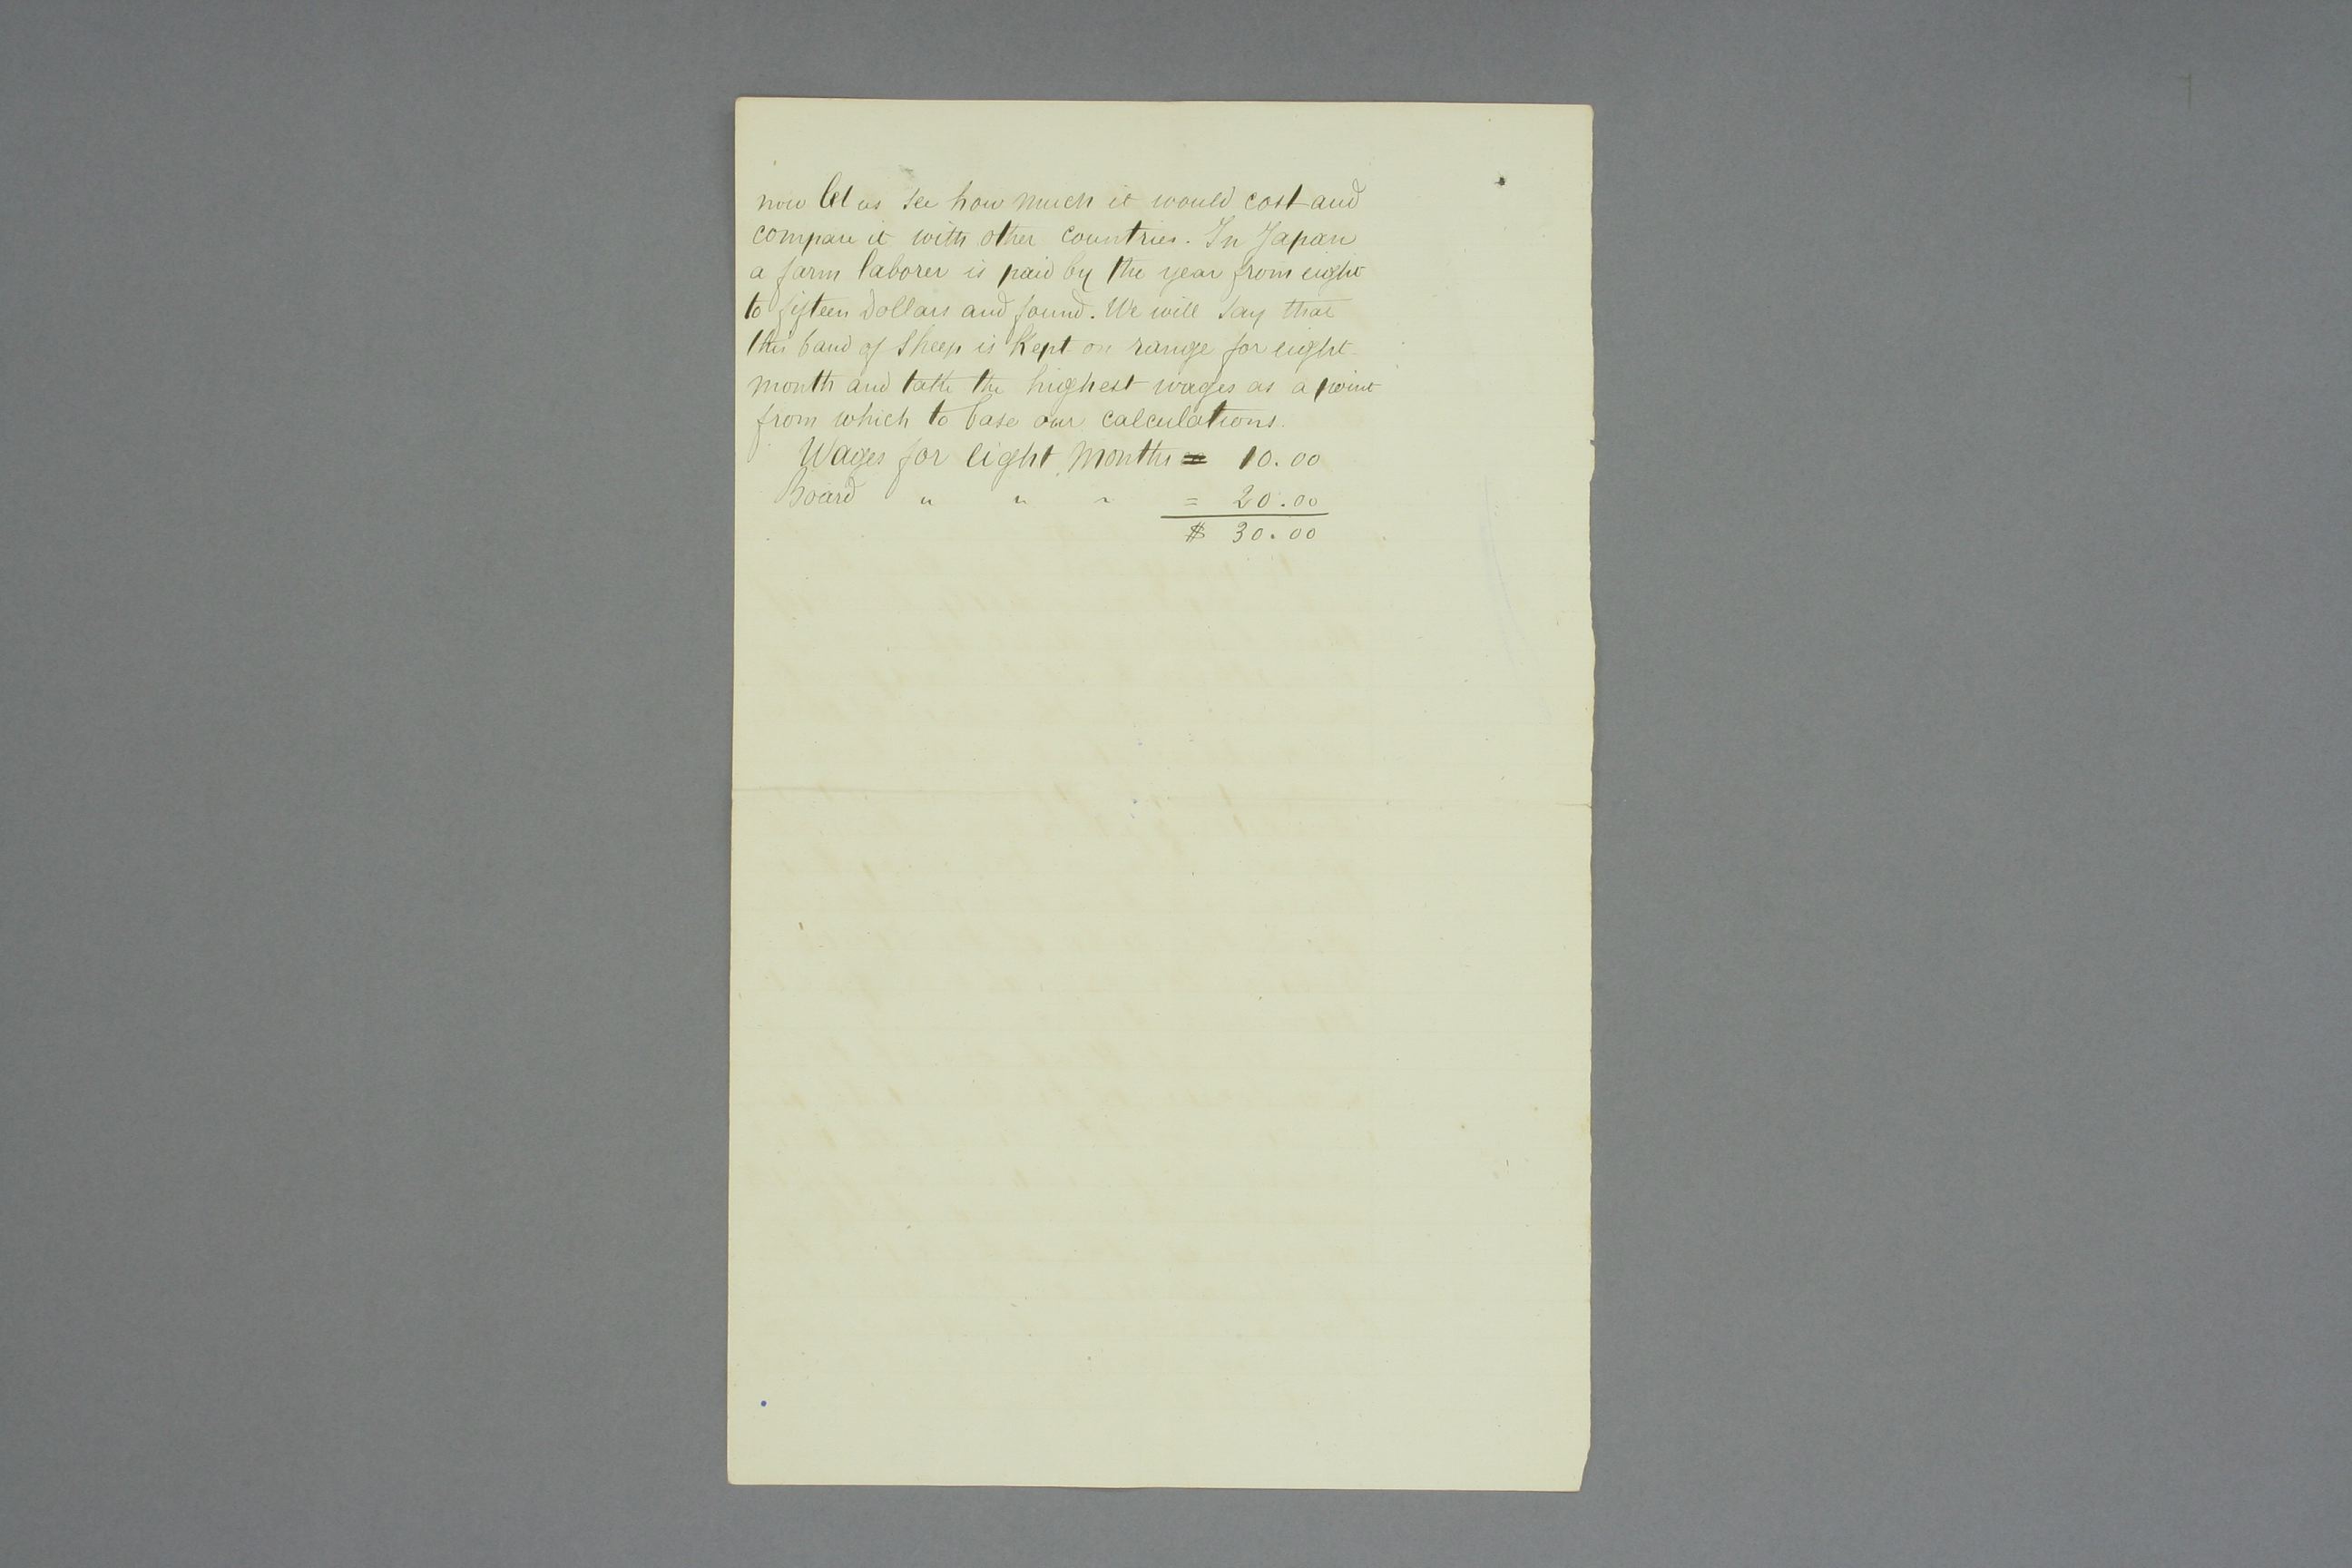 now let us see how much it would cost and
compare it with other countries. In Japan
a farm laborer is paid by the year from eight
to fifteen dollars and found. We will say that
this band of sheep is kept on range for eight
month and take the highest wages as a point
from which to base our calculations.
Wages for eight months = 10.00
Board " " " = 20.00
$ 30.00